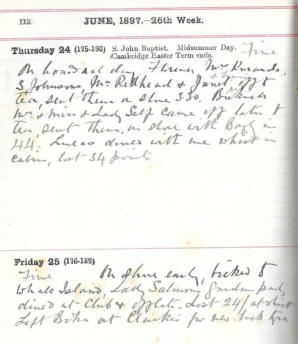 112 JUNE, 1897.—26th Week.
Thursday 24 (175-190) S. John Baptist. Midsummer Day. Fine
Cambridge Easter Term ends.
On board all day. Mrs
S Johnsons, Mr & Janet off to
tea, sent them on shore 3.30.
Mr & Miss & Lady Self came off later to
tea, sent them on shore with in
44. Lucas dines with me whist in
cabin, lost 34 points
Friday 25 (176-189)
Fine On shore early, biked to
Whale Island, Lady Salmons garden party
dined at Club & off late. Lost 24/ at whist
Left Bike at for new back tyre